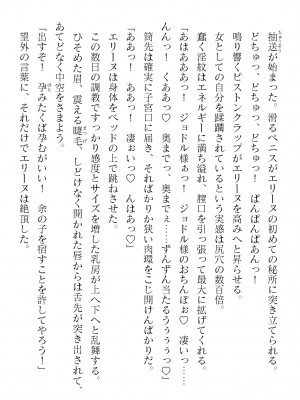 抽送が始まった。滑るペニスがエリーヌの初めての秘所に突き立てられる。
どちゅっ、どちゅっ、どちゅっ！　ぱんぱんぱあんっ！
鳴り響くピストンクラップがエリーヌを高みへと昇らせる。
女としての自分を蹂躙されているという実感は尻穴の数百倍。
蠢く淫紋はエネルギーに満ち溢れ、膣口を引っ張って最大に拡げてくれる。
「あはあああっ♡　ジョドル様ぁっ！　ジョドル様のおちんぽぉ♡　凄いっ♡
ああっ！　くああっ♡　奥までっ、奥までぇ……ずんずん当たるうぅぅぅっ♡」
筒先は確実に子宮口に届き、そればかりか狭い肉環をこじ開けんばかりだ。
「ああっ！　ああっ！　凄ぉいっ♡　んはあっ♡」
エリーヌは身体をベッドの上で跳ねさせた。
この数日の調教ですっかり感度とサイズを増した乳房が上へ下へと乱舞する。
ひそめた眉、震える睫毛、しどけなく開かれた唇からは舌先が突き出されて、
あてどなく中空をさまよう。
「出すぞ！　孕みたくば孕むがいい！　余の子を宿すことを許してやろう！」
望外の言葉に、それだけでエリーヌは絶頂した。